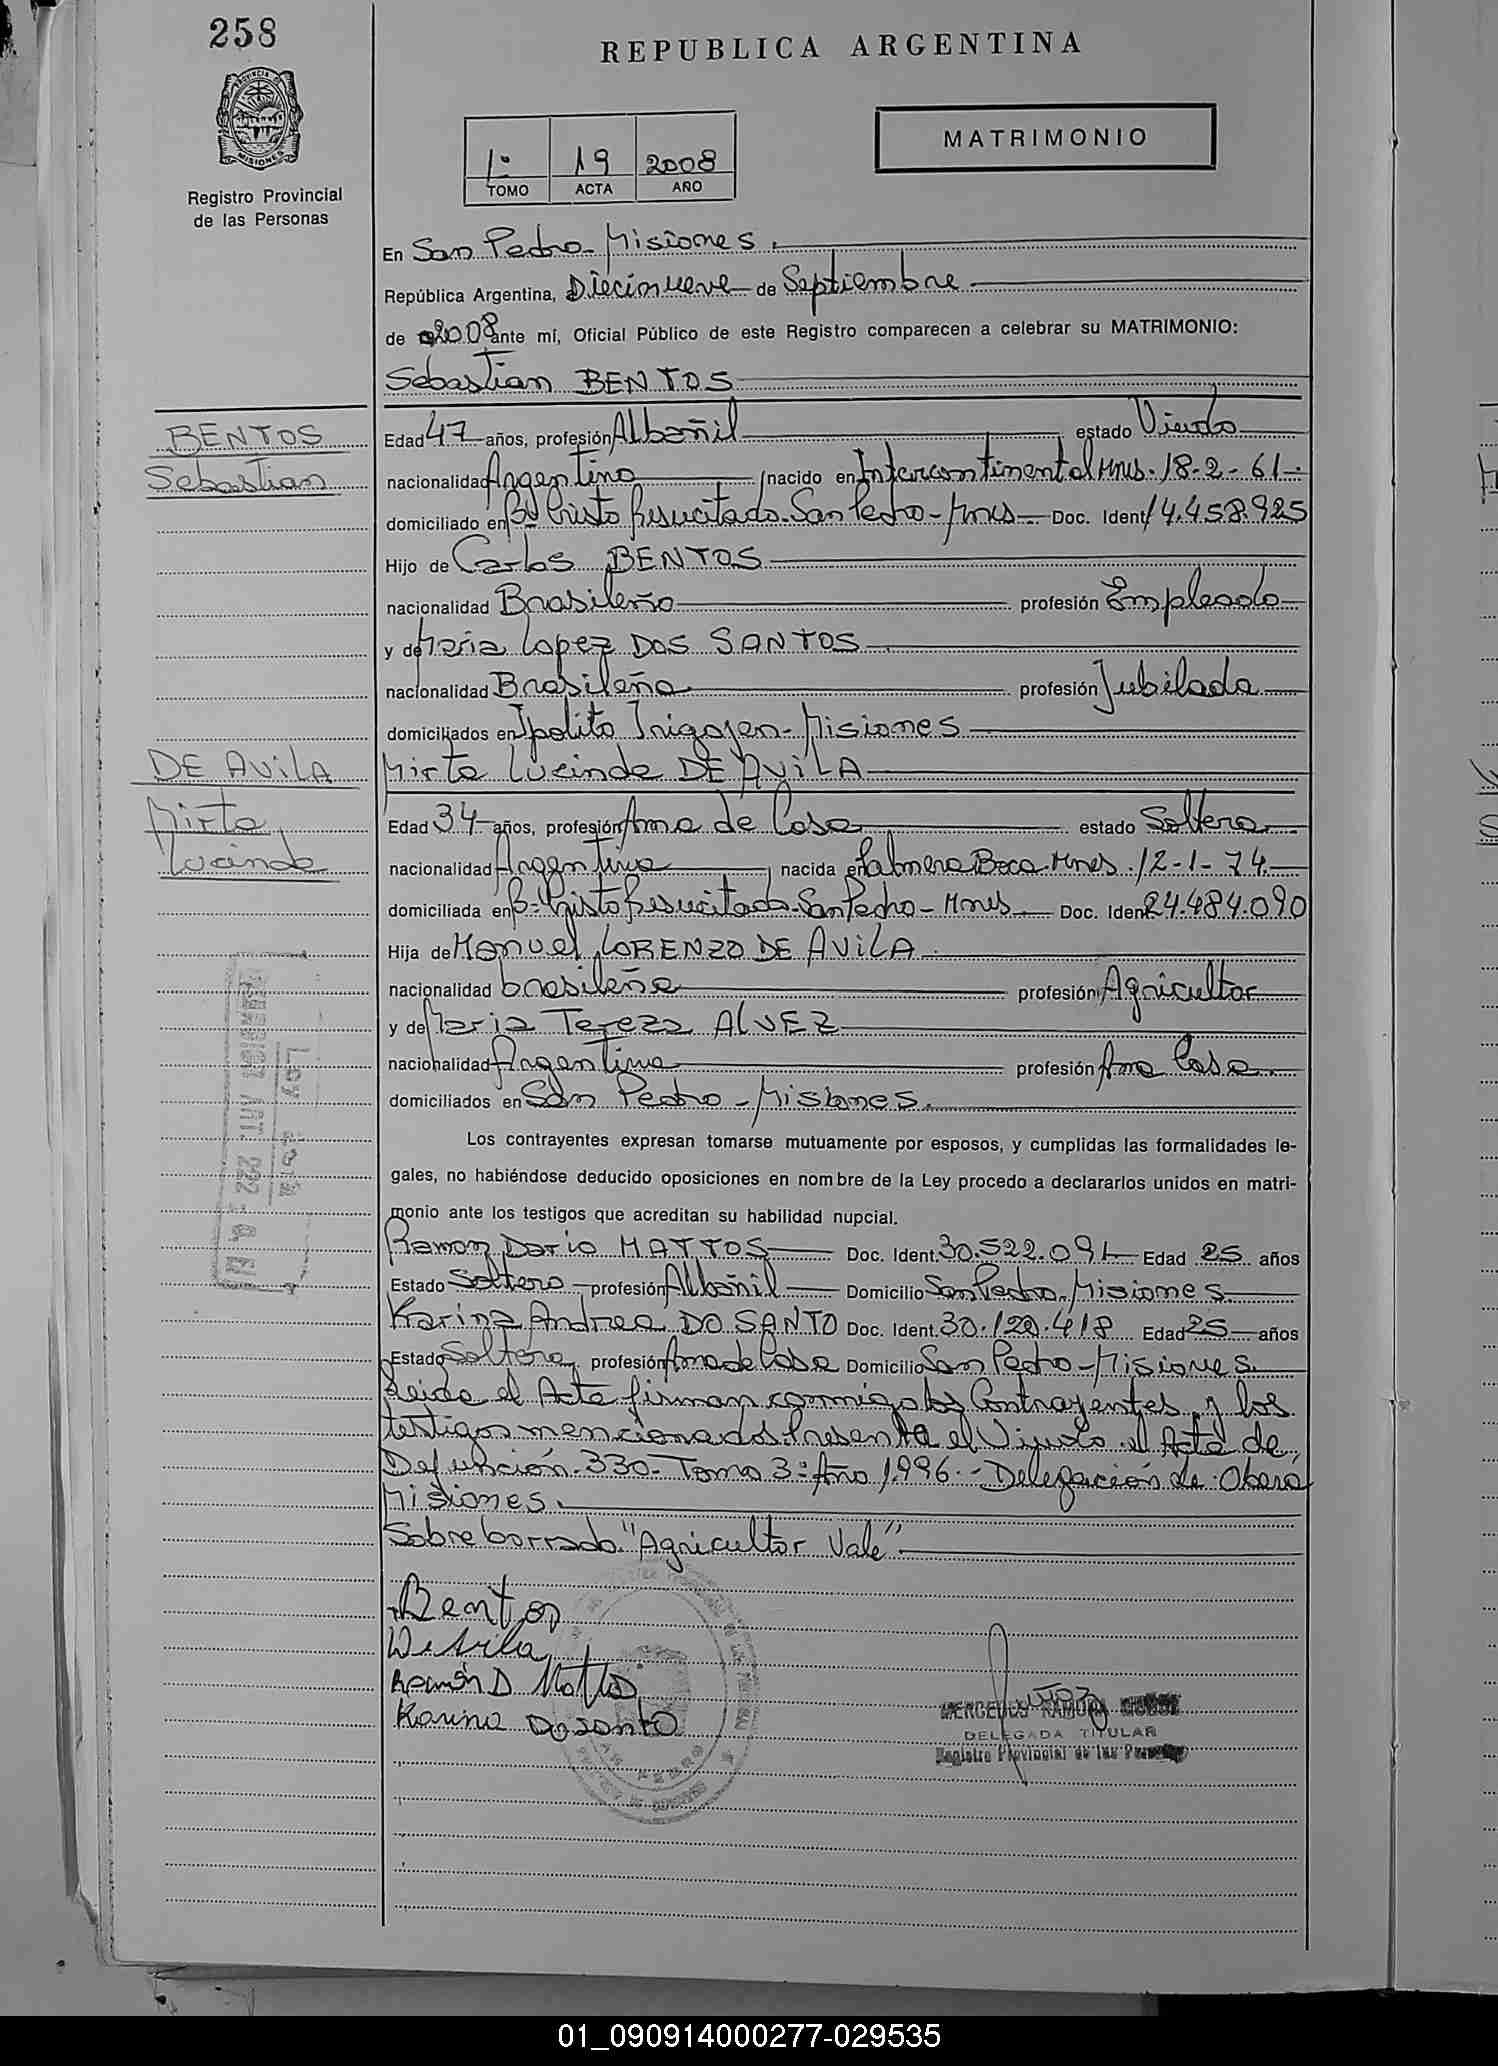 258
REPUBLICA ARGENTINA
PROVINCIA DE MISIONES
Registro Provincial
de las Personas
1º 19 2008
TOMO ACTA AÑO
MATRIMONIO
En San Pedro - Misiones.
República Argentina, Diecinueve de Septiembre
de 2008 ante mí, Oficial Público de este Registro comparecen a celebrar su MATRIMONIO:
Sebastian BENTOS
BENTOS
Sebastian
Edad 47 años, profesión Albañil estado Viudo
nacionalidad Argentino nacido en Intercontinental Mnes. 18-2-61.
domiciliado en Bº Cristo Resucitado. San Pedro - Mnes Doc. Ident 14.458.925
Hijo de Carlos BENTOS
nacionalidad Brasileño profesión Empleado
y de Maria Lopez DOS SANTOS
nacionalidad Brasileña profesión Jubilada
domiciliados en Ipolito Irigojen - Misiones
DE AViLA
Mirta
Lucinda
Mirta Lucinda DE AViLA
Edad 34 años, profesión Ama de Casa estado Soltera
nacionalidad Argentina nacida en Palmera Boca. Mnes. 12-1-74.
domiciliada en Bº Cristo Resucitado. San Pedro - Mnes Doc. Iden 24.484.090
Hija de Manuel LORENZO DE AViLA.
nacionalidad brasileña profesión Agricultor
y de Maria Tereza ALVEZ
nacionalidad Argentina profesión Ama Casa
domiciliados en San Pedro - Misiones.
Los contrayentes expresan tomarse mutuamente por esposos, y cumplidas las formalidades le-
gales, no habiéndose deducido oposiciones en nombre de la Ley procedo a declararlos unidos en matri-
monio ante los testigos que acreditan su habilidad nupcial.
Ramon Dario MATTOS Doc. Ident. 30.522.091 Edad 25 años
Estado Soltero profesión Albañil Domicilio San Pedro. Misiones
Karina Andrea DO SANTO Doc. Ident. 30.120.418 Edad 25 años
Estado Soltera profesión Ama de Casa Domicilio San Pedro - Misiones
Leida el Acta firman conmigo los Contrayentes y los
testigos mencionados. Presenta el Viudo el Acta de
Defunción 330 - Tomo 3º Año 1.996 - Delegación de Oberá
Misiones.
Sobre borrado "Agricultor Vale"
Ley
ART. 292
Bentos
De Avila
Ramón D Mattos
Karina Do santo
MERCEDES RAMONA
DELEGADA TITULAR
Registro Provincial de las
01_090914000277-029535